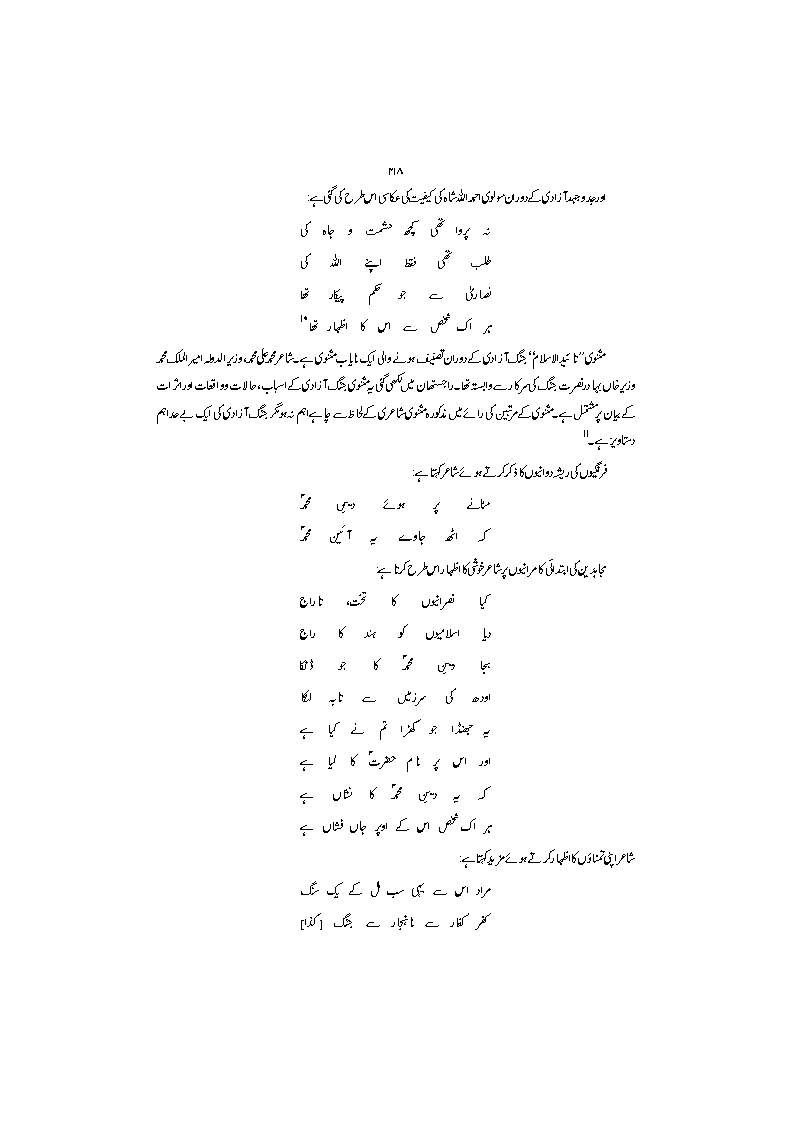 ۲۱۸
اور جدوجہد آزادی کے دوران مولوی احمد اللہ شاہ کی کیفیت کی عکاسی اس طرح کی گئی ہے:
نہ پروا تھی کچھ حشمت و جاہ کی
طلب تھی فقط اپنے اللہ کی
نصاریٰ سے جو حکم پیکار تھا
ہر اک شخص سے اس کا اظہار تھا۱۰
مثنوی ’’تائید الاسلام‘‘ جنگ آزادی کے دوران تصنیف ہونے والی ایک نایاب مثنوی ہے۔ شاعر محمد علی محمد، وزیر الدولہ امیر الملک محمد
وزیر خاں بہادر نصرت جنگ کی سرکار سے وابستہ تھا۔ راجستھان میں لکھی گئی یہ مثنوی جنگ آزادی کے اسباب، حالات و واقعات اور اثرات
کے بیان پر مشتمل ہے۔ مثنوی کے مرتبین کی رائے میں مذکورہ مثنوی شاعری کے لحاظ سے چاہے اہم نہ ہو مگر جنگ آزادی کی ایک بے حد اہم
دستاویز ہے۔۱۱
فرنگیوں کی ریشہ دوانیوں کا ذکر کرتے ہوئے شاعر کہتا ہے:
مٹانے پر ہوئے دینِ محمدؐ
کہ اٹھ جاوے یہ آئین محمدؐ
مجاہدین کی ابتدائی کامرانیوں پر شاعر خوشی کا اظہار اس طرح کرتا ہے:
کیا نصرانیوں کا تخت، تاراج
دیا اسلامیوں کو ہند کا راج
بجا دینِ محمدؐ کا جو ڈنکا
اودھ کی سرزمیں سے تابہ لنکا
یہ جھنڈا جو کھڑا تم نے کیا ہے
اور اس پر نام حضرتؐ کا لیا ہے
کہ یہ دینِ محمدؐ کا نشاں ہے
ہر اک شخص اس کے اوپر جاں فشاں ہے
شاعر اپنی تمناؤں کا اظہار کرتے ہوئے مزید کہتا ہے:
مراد اس سے یہی سب مل کے یک سنگ
کفر کفار سے ناہنجار سے جنگ [کذا]